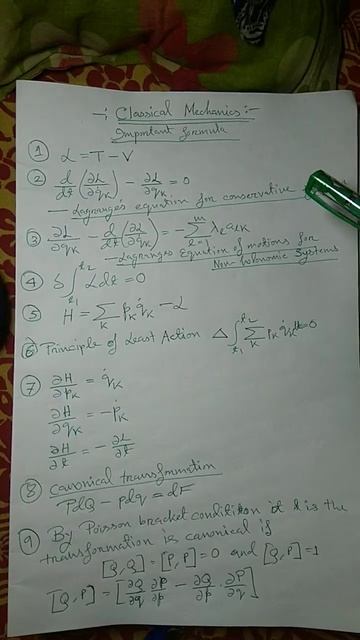 -: Classical Mechanics:-
Important formula
① L = T - V
② d/dt (∂L/∂q̇_K) - ∂L/∂q_K = 0
- Lagrange's equation for conservative
③ ∂L/∂q_K - d/dt (∂L/∂q̇_K) = - Σ_{l=1}^{m} λ_l a_{lK}
- Lagrange's Equation of motions for
Non-holonomic Systems
④ δ ∫_{t₁}^{t₂} L dt = 0
⑤ H = Σ_K p_K q̇_K - L
⑥ Principle of Least Action Δ ∫_{t₁}^{t₂} Σ_K p_K q̇_K dt = 0
⑦ ∂H/∂p_K = q̇_K
∂H/∂q_K = - ṗ_K
∂H/∂t = - ∂L/∂t
⑧ canonical transformation
PdQ - pdq = dF
⑨ By Poisson bracket condition it is the
transformation is canonical if
[Q, Q] = [P, P] = 0 and [Q, P] = 1
[Q, P] = [∂Q/∂q ∂P/∂p - ∂Q/∂p . ∂P/∂q]